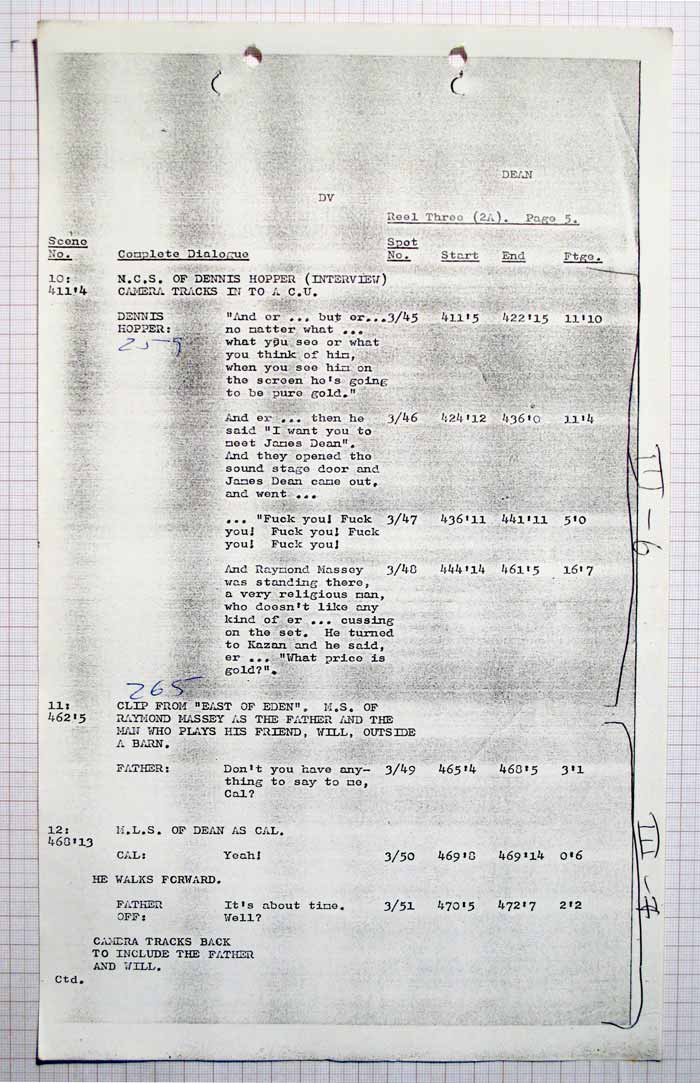 DEAN
DV
Reel Three (2A). Page 5.
Scene No. Complete Dialogue Spot No. Start End Ftge.
10: N.C.S. OF DENNIS HOPPER (INTERVIEW)
411'4 CAMERA TRACKS IN TO A C.U.
DENNIS "And er ... but er... 3/45 411'5 422'15 11'10
HOPPER: no matter what ...
255 what you see or what
you think of him,
when you see him on
the screen he's going
to be pure gold."
And er ... then he 3/46 424'12 436'0 11'4
said "I want you to
meet James Dean".
And they opened the
sound stage door and
James Dean came out,
and went ...
... "Fuck you! Fuck 3/47 436'11 441'11 5'0
you! Fuck you! Fuck
you! Fuck you!
And Raymond Massey 3/48 444'14 461'5 16'7
was standing there,
a very religious man,
who doesn't like any
kind of er ... cussing
on the set. He turned
to Kazan and he said,
er ... "What price is
gold?".
III - 6
265
11: CLIP FROM "EAST OF EDEN". M.S. OF
462'5 RAYMOND MASSEY AS THE FATHER AND THE
MAN WHO PLAYS HIS FRIEND, WILL, OUTSIDE
A BARN.
FATHER: Don't you have any- 3/49 465'4 468'5 3'1
thing to say to me,
Cal?
12: M.L.S. OF DEAN AS CAL.
468'13
CAL: Yeah! 3/50 469'8 469'14 0'6
HE WALKS FORWARD.
FATHER It's about time. 3/51 470'5 472'7 2'2
OFF: Well?
CAMERA TRACKS BACK
TO INCLUDE THE FATHER
AND WILL.
Ctd.
III - 7